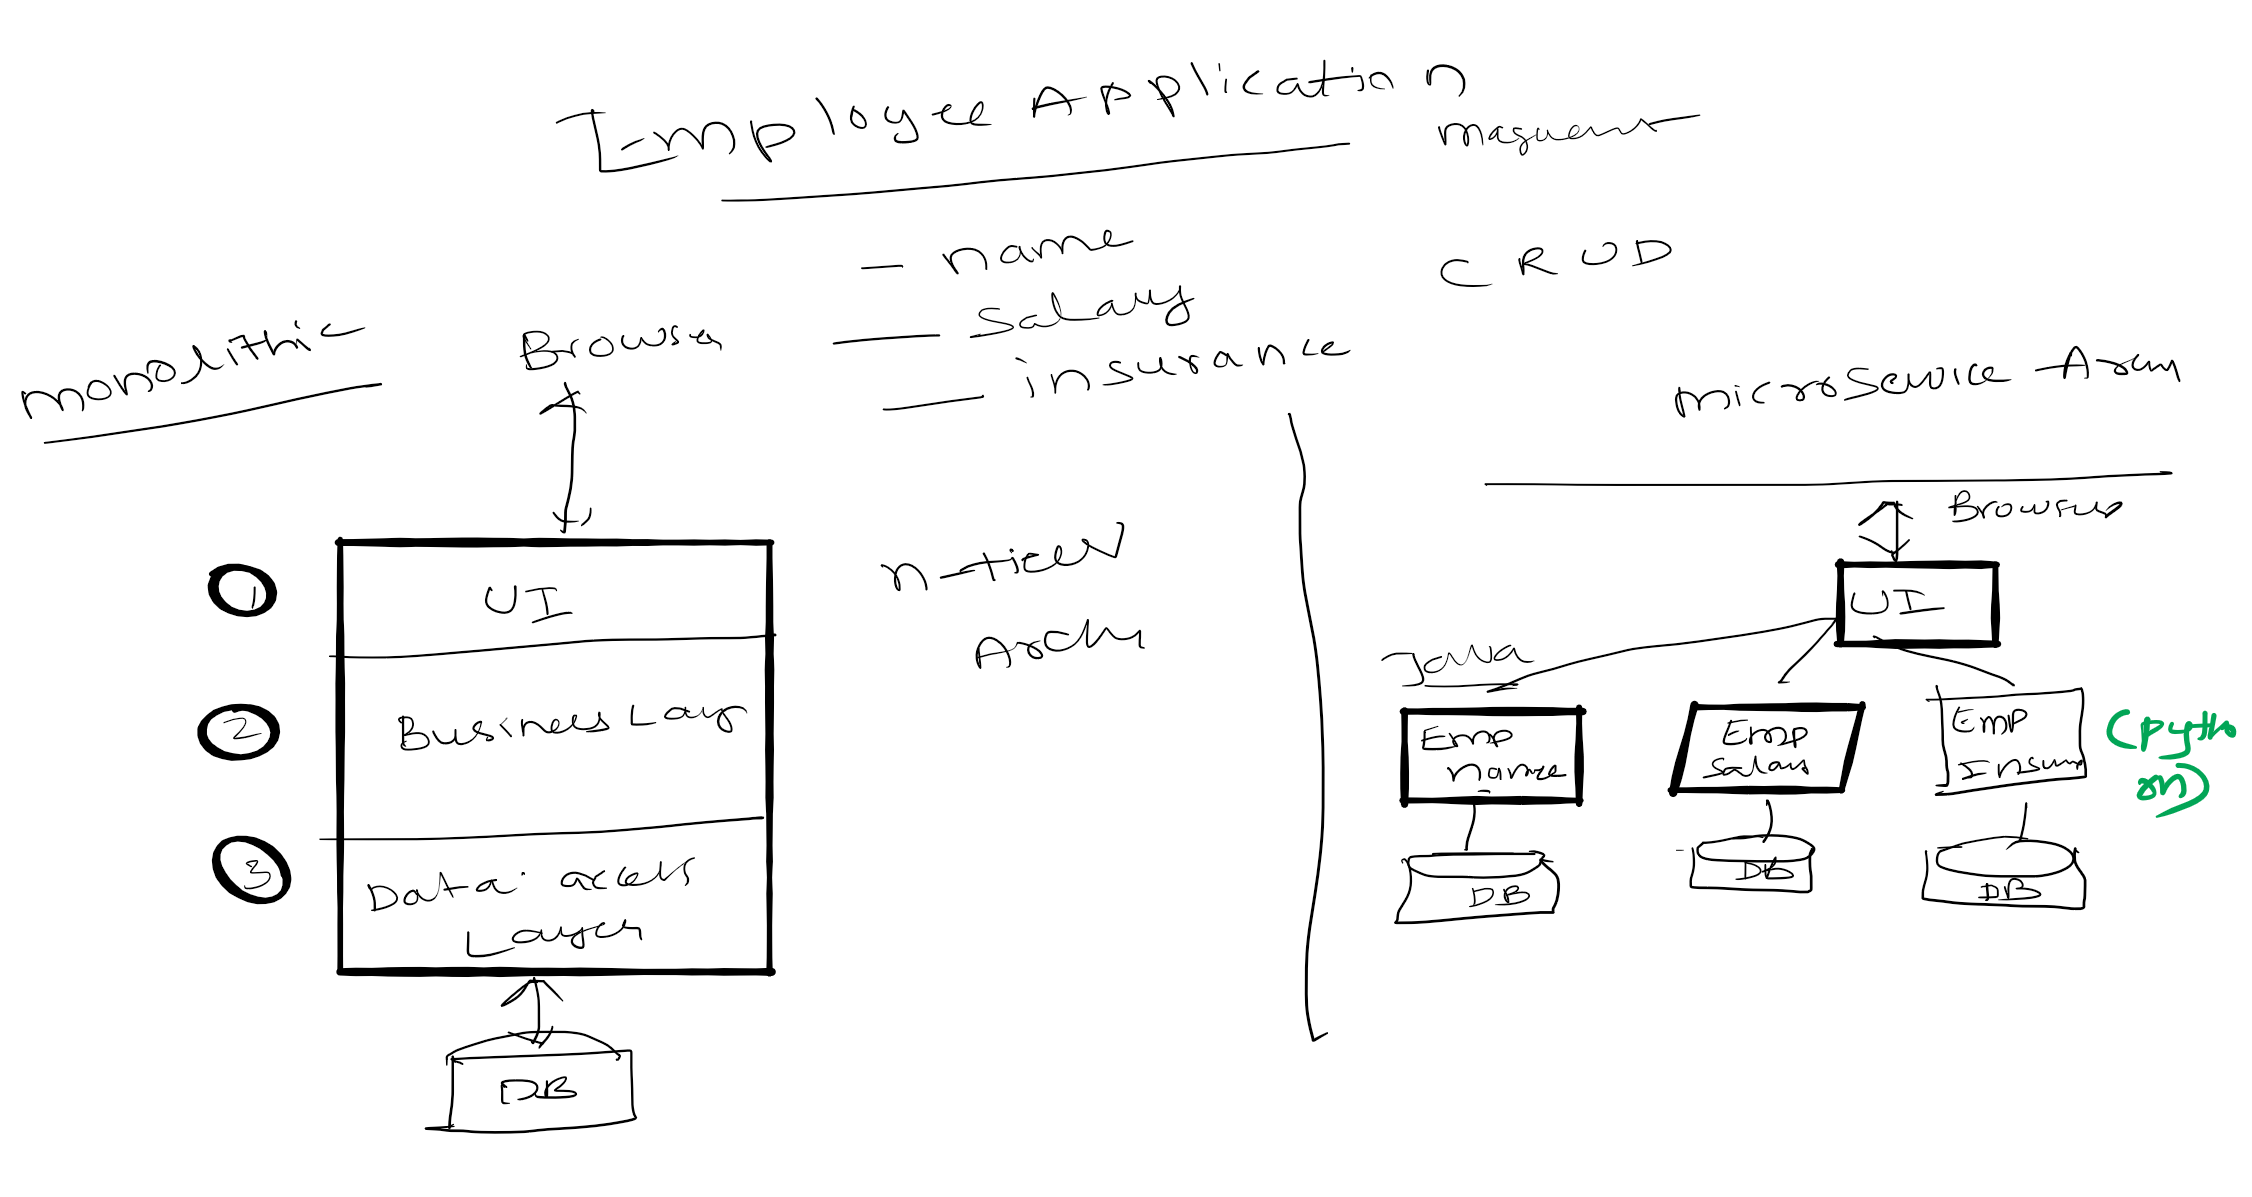 Employee Application
- name
- Salary
- insurance
C R U D
monolithic
Browser
1
UI
2
Business Layr
3
Data access
Layer
DB
n-tier
Arch
microService Arch
Browser
UI
Java
Emp
name
DB
Emp
Salary
DB
Emp
Insur
DB
(pyth
on)